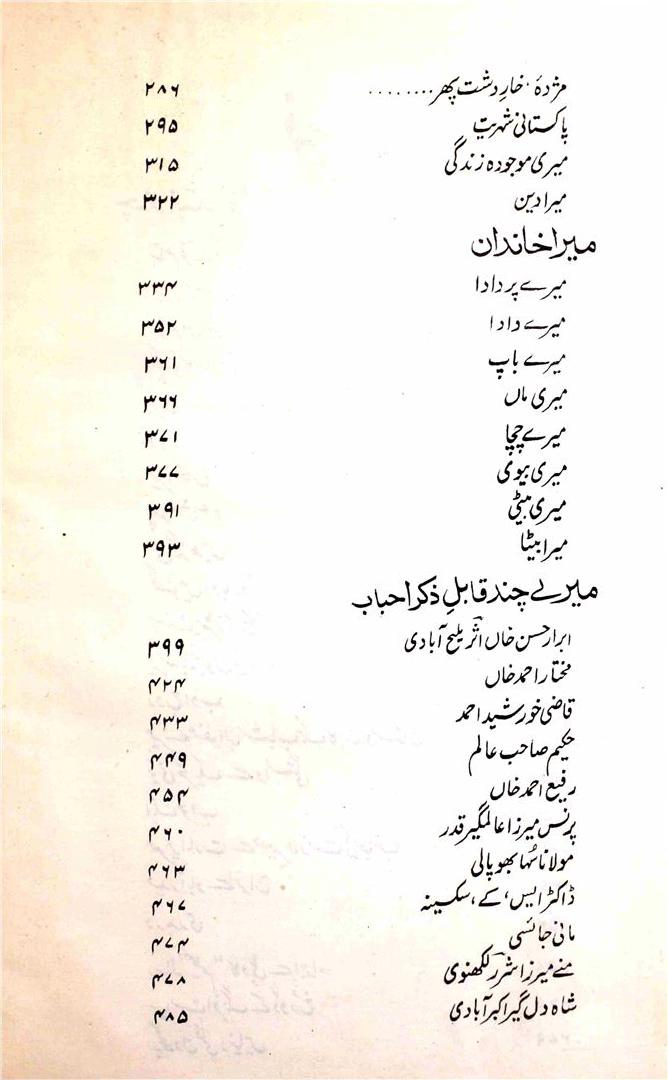 مژدہ، خارِ دشت پھر ........ ۲۸۶
پاکستانی شہریت ۲۹۵
میری موجودہ زندگی ۳۱۵
میرا دین ۳۲۲
میرا خاندان
میرے پر دادا ۳۳۴
میرے دادا ۳۵۲
میرے باپ ۳۶۱
میری ماں ۳۶۶
میرے چچا ۳۷۱
میری بیوی ۳۷۷
میری بیٹی ۳۹۱
میرا بیٹا ۳۹۳
میرے چند قابلِ ذکر احباب
ابرار حسن خاں اثرؔ ملیح آبادی ۳۹۹
مختار احمد خاں ۴۲۴
قاضی خورشید احمد ۴۳۳
حکیم صاحب عالم ۴۴۹
رفیع احمد خاں ۴۵۴
پرنس میرزا عالمگیر قدر ۴۶۰
مولانا سُہا بھوپالی ۴۶۳
ڈاکٹر ایس، کے، سکسینہ ۴۶۷
مانی جائسی ۴۷۴
منے میرزا شررؔ لکھنوی ۴۷۸
شاہ دل گیر اکبر آبادی ۴۸۵